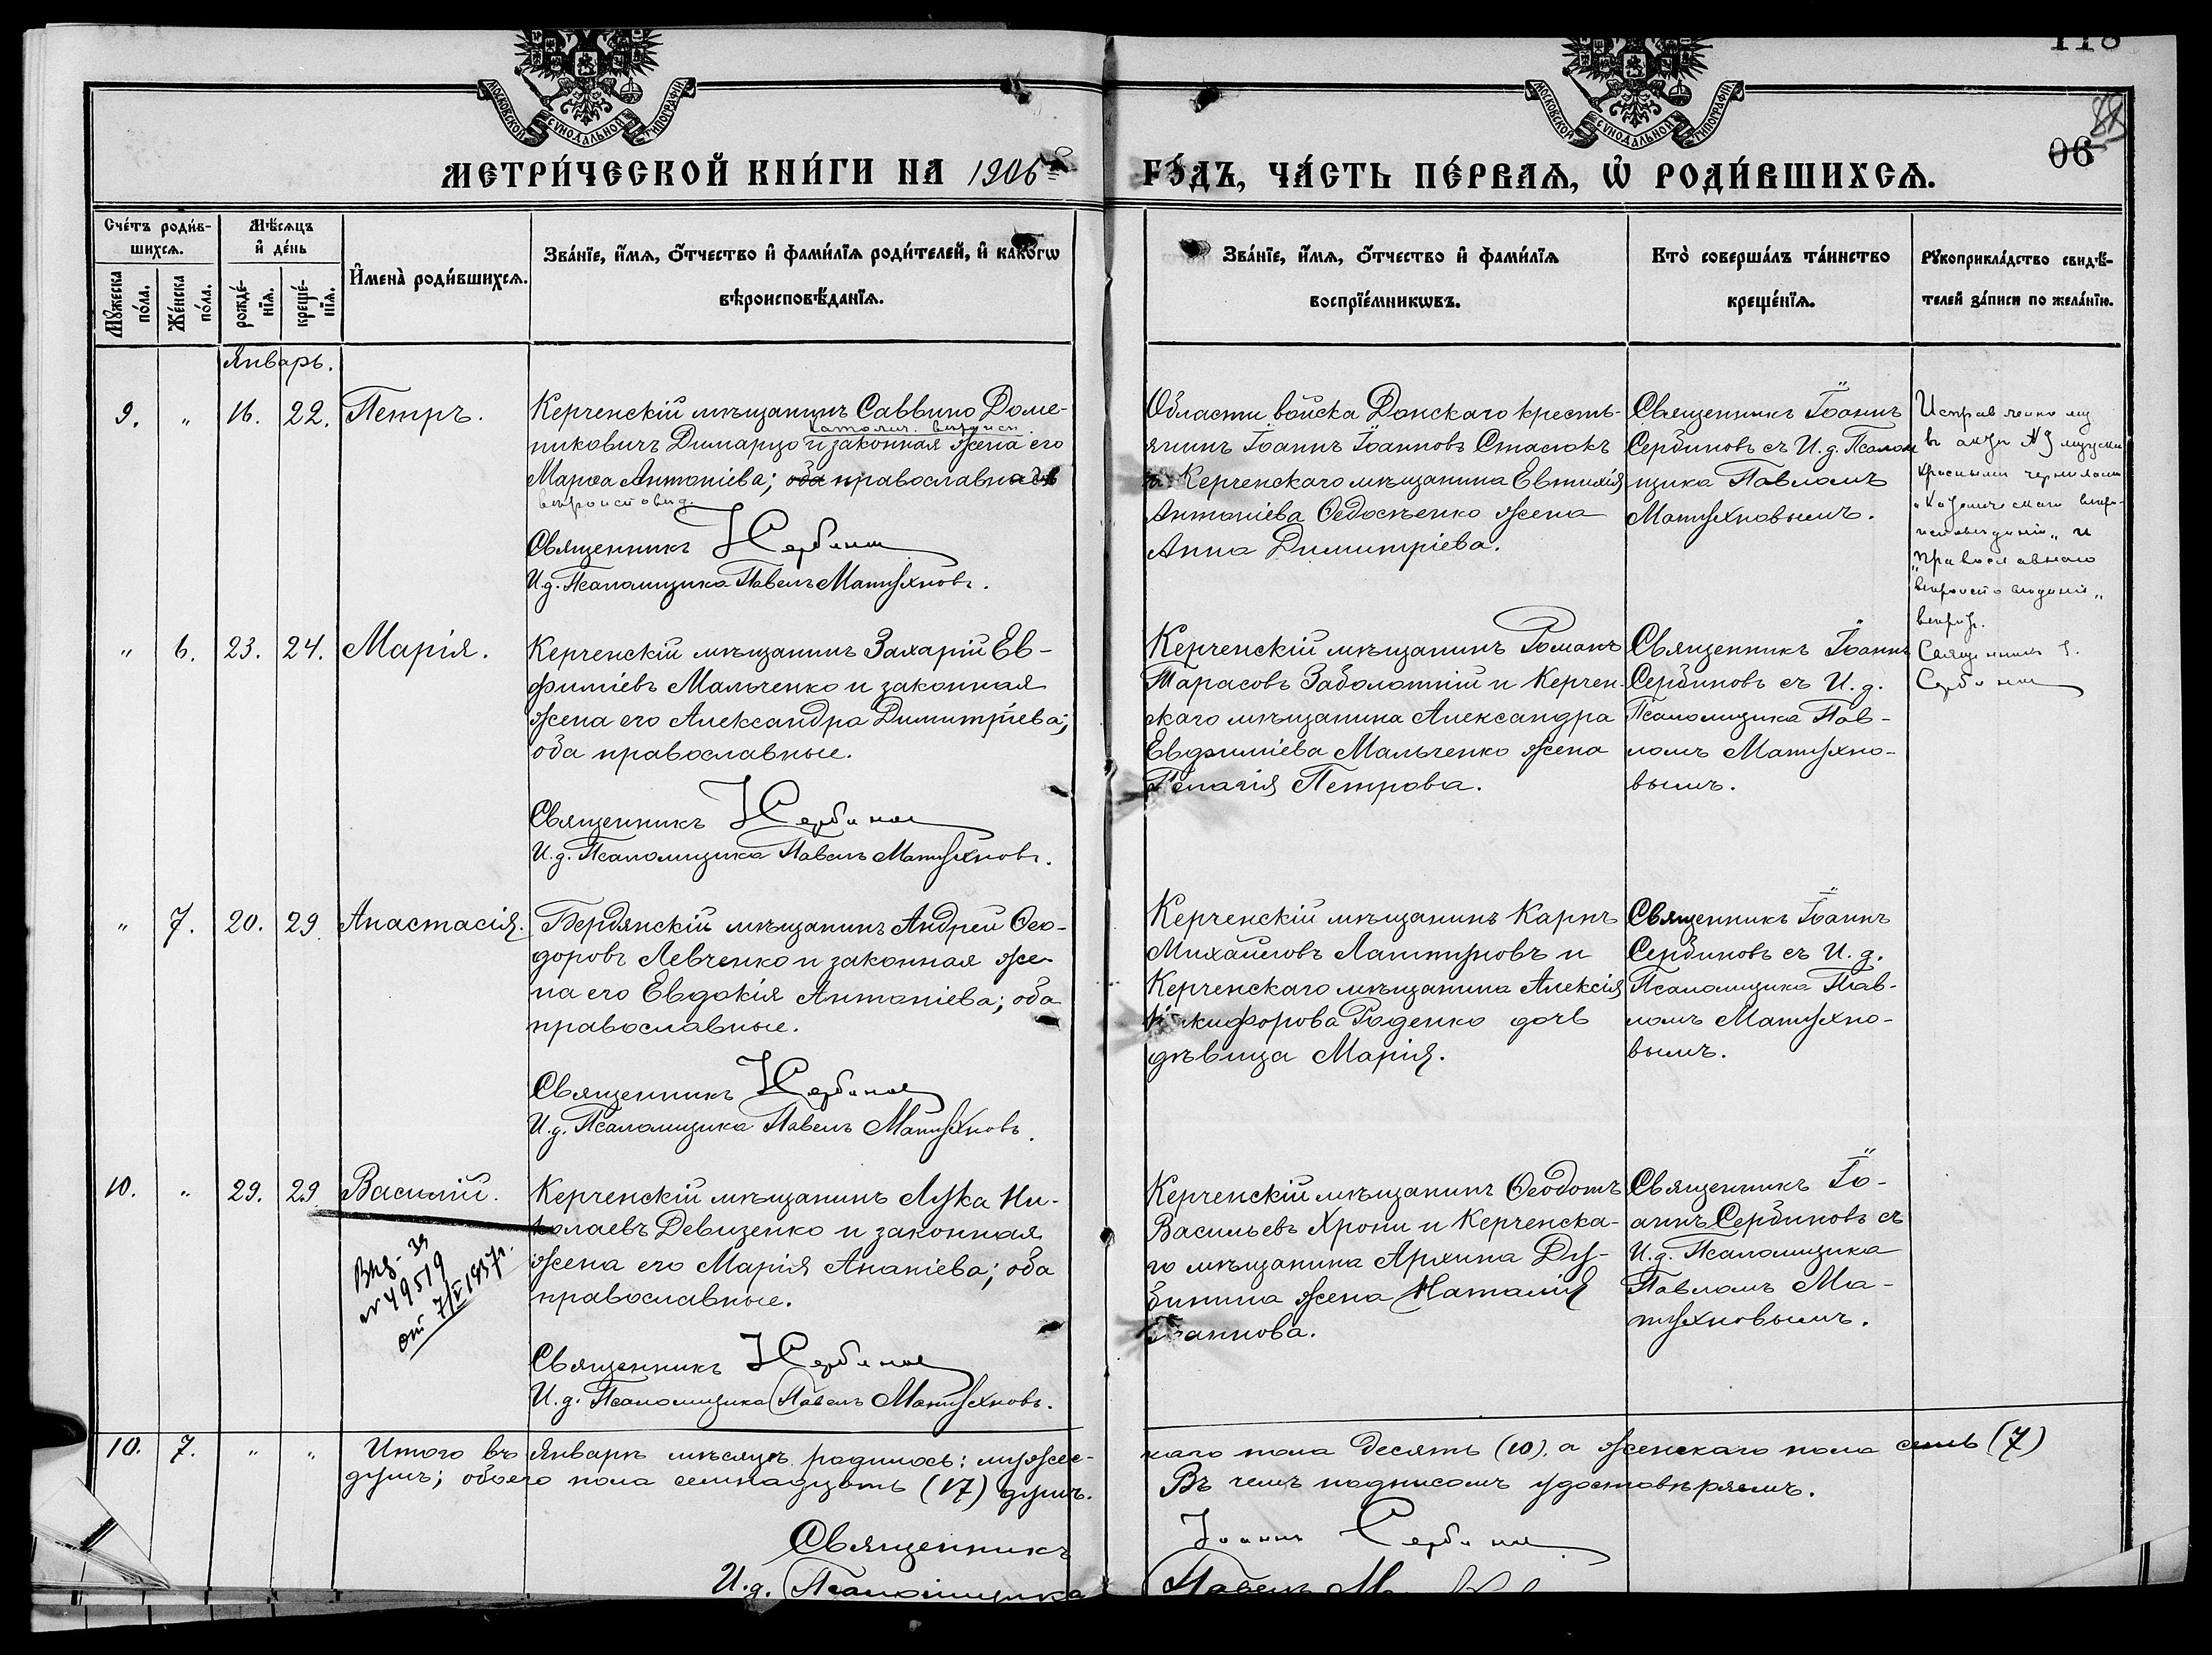 118
МОСКОВСКОЙ СУНОДАЛЬНОЙ ТИПОГРАФІИ
МОСКОВСКОЙ СУНОДАЛЬНОЙ ТИПОГРАФІИ
МЕТРИ́ЧЕСКОЙ КНИ́ГИ НА 1906й ГО́ДЪ, ЧА́СТЬ ПЕ́РВАѦ, Ѡ҆ РОДИ́ВШИХСѦ.
Сче́тъ роди́в-
шихсѧ.
Мꙋ́жеска
по́ла.
Же́нска
по́ла.
Мѣ́сѧцъ
и҆ де́нь
рожде́-
нїѧ.
креще́-
нїѧ.
И҆мена̀ роди́вшихсѧ.
Зва́нїе, и҆́мѧ, ѻ҆́тчество и҆ фами́лїѧ роди́телей, и҆ како́гѡ
вѣроисповѣ́данїѧ.
Зва́нїе, и҆́мѧ, ѻ҆́тчество и҆ фами́лїѧ
воспрїе́мникѡвъ.
Кто̀ соверша́лъ та́инство
креще́нїѧ.
Рꙋкоприкла́дство свидѣ́-
телей за́писи по жела́нїю.
Январь.
9. " 16. 22. Петръ.
Керченскій мѣщанинъ Саввино Доме-
католич. вѣроисп.
никовичъ Димарцо и законная жена его
Марѳа Антоніева; оба православн
вѣроисповѣд.
Священникъ І Сербинов
И.д. Псаломщика Павелъ Матухновъ.
Области войска Донскаго кресть-
янинъ Іоаннъ Іоанновъ Стасюкъ
и Керченскаго мѣщанина Евтихія
Антоніева Ѳедосѣенко жена
Анна Димитріева.
Священникъ Іоаннъ
Сербиновъ съ И.д. Псалом
щика Павломъ
Матухновымъ.
Исправленному
красными чернилами
"Католическаго вѣро-
исповѣданія" и
"Православнаго
вѣроисповѣданія"
вѣрить.
Священникъ І.
Сербинов
" 6. 23. 24. Марія.
Керченскій мѣщанинъ Захарій Ев-
фиміевъ Мальченко и законная
жена его Александра Димитріева;
оба православные.
Священникъ І Сербинов
И.д. Псаломщика Павелъ Матухновъ.
Керченскій мѣщанинъ Романъ
Тарасовъ Заболотній и Керчен-
скаго мѣщанина Александра
Евфиміева Мальченко жена
Пелагія Петрова.
Священникъ Іоаннъ
Сербиновъ съ И.д.
Псаломщика Пав-
ломъ Матухно-
вымъ.
" 7. 20. 29. Анастасія.
Бердянскій мѣщанинъ Андрей Ѳео-
доровъ Левченко и законная же-
на его Евдокія Антоніева; оба
православные.
Священникъ І Сербинов
И.д. Псаломщика Павелъ Матухновъ.
Керченскій мѣщанинъ Карпъ
Михайловъ и
Керченскаго мѣщанина Алексія
Никифорова Роденко дочь
дѣвица Марія.
Священникъ Іоаннъ
Сербиновъ съ И.д.
Псаломщика Пав-
ломъ Матухно-
вымъ.
10. " 29. 29. Василій.
Керченскій мѣщанинъ Лука Ни-
колаевъ Девизенко и законная
жена его Марія Ананіева; оба
православные.
Священникъ І Сербинов
И.д. Псаломщика Павелъ Матухновъ.
№ 49519
от 7/V 1937г.
Керченскій мѣщанинъ Ѳеодотъ
Васильевъ Хрони и Керченска-
го мѣщанина Архипа Ду-
бинина жена Наталія
Іоаннова.
Священникъ Іо-
аннъ Сербиновъ съ
И.д. Псаломщика
Павломъ Ма-
тухновымъ.
10. 7. " " Итого въ Январѣ мѣсяцѣ родилось: мужес-
каго пола десять (10), а женскаго пола семь (7)
душъ; обоего пола семнадцать (17) душъ.
Въ чемъ подписомъ удостовѣряемъ.
Священникъ Іоаннъ Сербинов
И.д. Псаломщика Павелъ